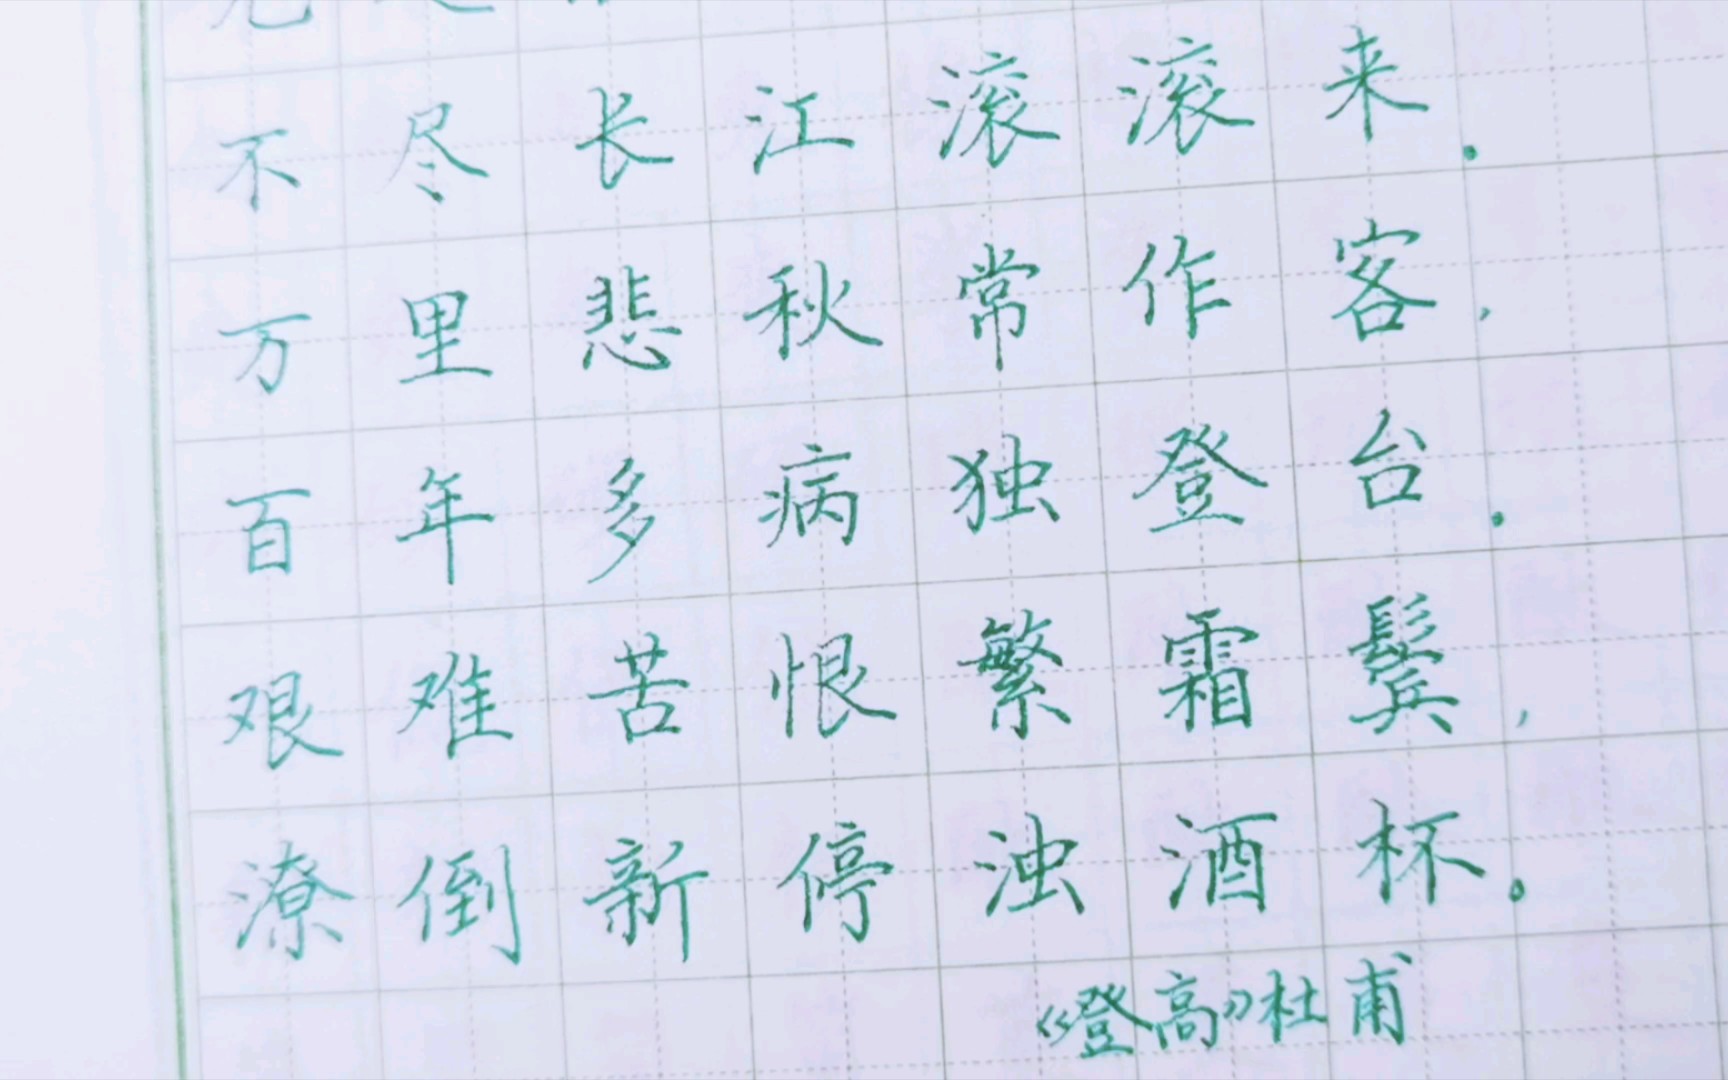 不尽长江滚滚来.
万里悲秋常作客,
百年多病独登台.
艰难苦恨繁霜鬓,
潦倒新停浊酒杯.
《登高》杜甫